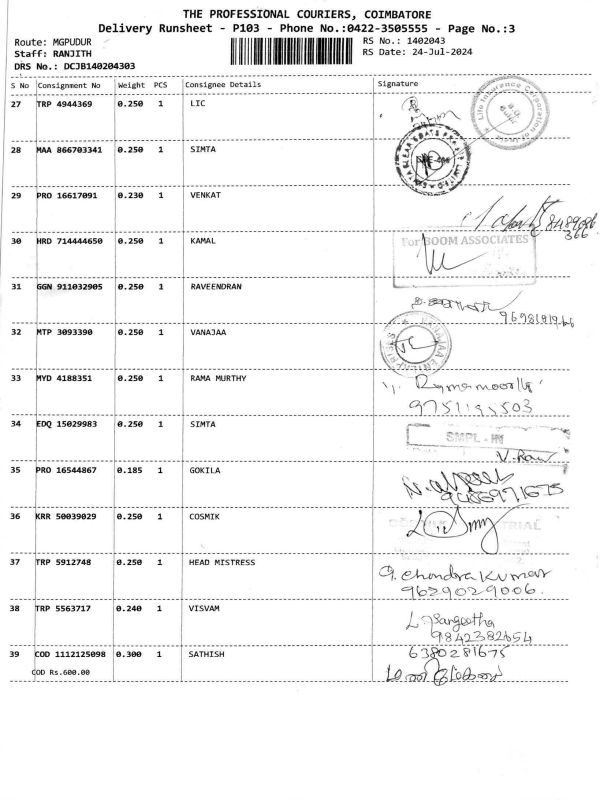 THE PROFESSIONAL COURIERS, COIMBATORE
Delivery Runsheet - P103 - Phone No.:0422-3505555 - Page No.:3
Route: MGPUDUR
Staff: RANJITH
DRS No.: DCJB140204303
RS No.: 1402043
RS Date: 24-Jul-2024
S No Consignment No Weight PCS Consignee Details Signature
27 TRP 4944369 0.250 1 LIC
Life Insurance Corporation of India
28 MAA 866703341 0.250 1 SIMTA
29 PRO 16617091 0.230 1 VENKAT
8489086
366
30 HRD 714444650 0.250 1 KAMAL
For BOOM ASSOCIATES
31 GGN 911032905 0.250 1 RAVEENDRAN
32 MTP 3093390 0.250 1 VANAJAA
33 MYD 4188351 0.250 1 RAMA MURTHY
34 EDQ 15029983 0.250 1 SIMTA
SMPL - HN
V. Ravi
35 PRO 16544867 0.185 1 GOKILA
36 KRR 50039029 0.250 1 COSMIK
37 TRP 5912748 0.250 1 HEAD MISTRESS
G. Chandra Kumar
9629029006.
38 TRP 5563717 0.240 1 VISVAM
L. Sangeetha
9842382654
39 COD 1112125098 0.300 1 SATHISH
6380281675
COD Rs.600.00